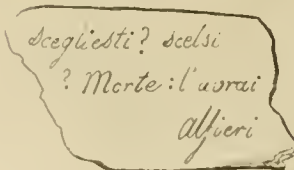 Scegliesti? Scelsi
? Morte: l'avrai
Alfieri